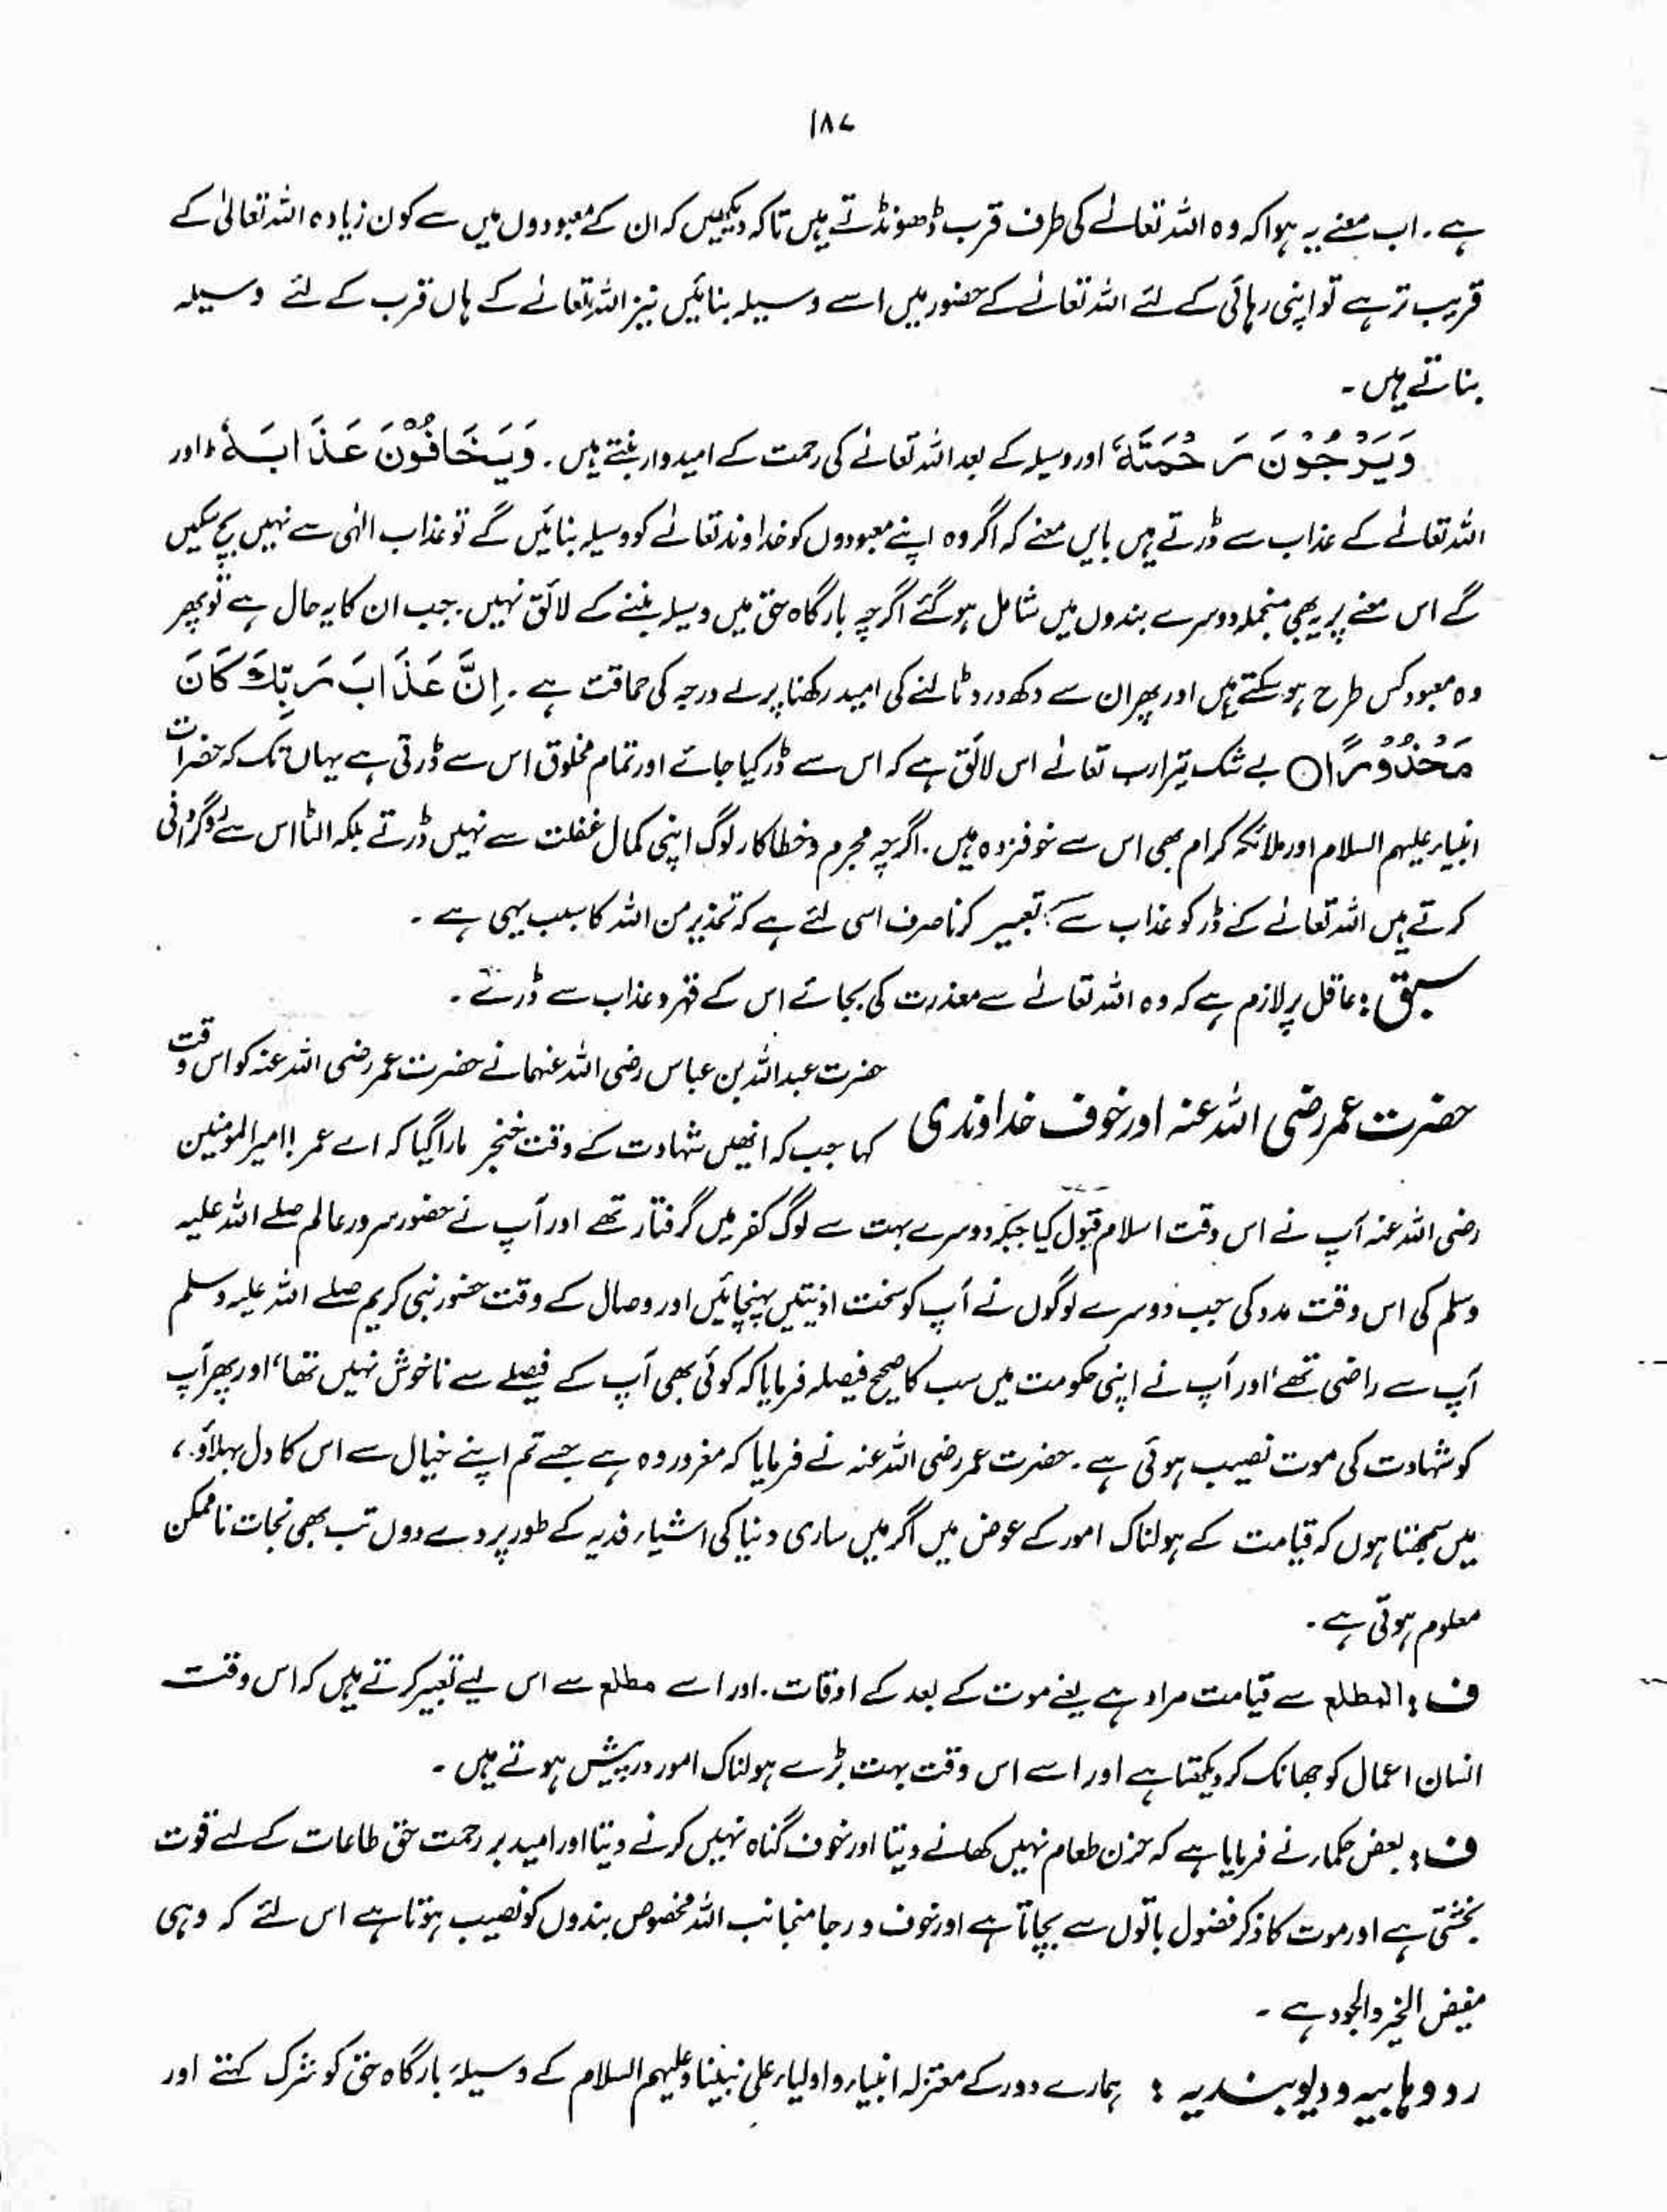 ۱۸۷
ہے۔ اب معنے یہ ہوا کہ وہ اللہ تعالےٰ کی طرف قرب ڈھونڈتے ہیں تاکہ دیکھیں کہ ان کے معبودوں میں سے کون زیادہ اللہ تعالیٰ کے
قریب تر ہے تو اپنی رہائی کے لئے اللہ تعالےٰ کے حضور میں اسے وسیلہ بنائیں نیز اللہ تعالےٰ کے ہاں قرب کے لئے وسیلہ
بناتے ہیں۔
وَيَرْجُوْنَ رَحْمَتَهٗ اور وسیلہ کے بعد اللہ تعالےٰ کی رحمت کے امیدوار بنتے ہیں۔ وَيَخَافُوْنَ عَذَابَهٗ ؕ اور
اللہ تعالےٰ کے عذاب سے ڈرتے ہیں بایں معنے کہ اگر وہ اپنے معبودوں کو خداوند تعالےٰ کو وسیلہ بنائیں گے تو عذاب الٰہی سے نہیں بچ سکیں
گے اس معنے پر یہ بھی منجملہ دوسرے بندوں میں شامل ہو گئے اگرچہ بارگاہ حق میں وسیلہ بننے کے لائق نہیں۔ جب ان کا یہ حال ہے تو پھر
وہ معبود کس طرح ہو سکتے ہیں اور پھر ان سے دکھ درد ٹالنے کی امید رکھنا پرلے درجہ کی حماقت ہے۔ اِنَّ عَذَابَ رَبِّكَ كَانَ
مَحْذُوْرًا ○ بے شک تیرا رب تعالےٰ اس لائق ہے کہ اس سے ڈر کیا جائے اور تمام مخلوق اس سے ڈرتی ہے یہاں تک کہ حضرات
انبیاء علیہم السلام اور ملائکہ کرام بھی اس سے خوفزدہ ہیں۔ اگرچہ مجرم وخطاکار لوگ اپنی کمال غفلت سے نہیں ڈرتے بلکہ الٹا اس سے روگردانی
کرتے ہیں اللہ تعالےٰ کے ڈر کو عذاب سے تعبیر کرنا صرف اسی لئے ہے کہ تحذیر من اللہ کا سبب یہی ہے۔
سبق: عاقل پر لازم ہے کہ وہ اللہ تعالےٰ سے معذرت کی بجائے اس کے قہر و عذاب سے ڈرے۔
حضرت عمر رضی اللہ عنہ اور خوف خداوندی
حضرت عبداللہ بن عباس رضی اللہ عنہما نے حضرت عمر رضی اللہ عنہ کو اس وقت
کہا جب کہ انھیں شہادت کے وقت خنجر مارا گیا کہ اے عمر! امیر المؤمنین
رضی اللہ عنہ آپ نے اس وقت اسلام قبول کیا جبکہ دوسرے بہت سے لوگ کفر میں گرفتار تھے اور آپ نے حضور سرور عالم صلے اللہ علیہ
وسلم کی اس وقت مدد کی جب دوسرے لوگوں نے آپ کو سخت اذیتیں پہنچائیں اور وصال کے وقت حضور نبی کریم صلے اللہ علیہ وسلم
آپ سے راضی تھے' اور آپ نے اپنی حکومت میں سب کا صحیح فیصلہ فرمایا کہ کوئی بھی آپ کے فیصلے سے ناخوش نہیں تھا' اور پھر آپ
کو شہادت کی موت نصیب ہوئی ہے۔ حضرت عمر رضی اللہ عنہ نے فرمایا کہ مغرور وہ ہے جسے تم اپنے خیال سے اس کا دل بہلاؤ،
میں سمجھتا ہوں کہ قیامت کے ہولناک امور کے عوض میں اگر میں ساری دنیا کی اشیاء فدیہ کے طور پر دے دوں تب بھی نجات ناممکن
معلوم ہوتی ہے۔
ف: المطلع سے قیامت مراد ہے یعنے موت کے بعد کے اوقات۔ اور اسے مطلع سے اس لیے تعبیر کرتے ہیں کہ اس وقت
انسان اعمال کو جھانک کر دیکھتا ہے اور اسے اس وقت بہت بڑے ہولناک امور درپیش ہوتے ہیں۔
ف: بعض حکماء نے فرمایا ہے کہ حزن طعام نہیں کھانے دیتا اور خوف گناہ نہیں کرنے دیتا اور امید بر رحمت حق طاعات کے لیے قوت
بخشتی ہے اور موت کا ذکر فضول باتوں سے بچاتا ہے اور خوف و رجا منجانب اللہ مخصوص بندوں کو نصیب ہوتا ہے اس لئے کہ وہی
مفیض الخیر والجود ہے۔
رد وہابیہ و دیوبندیہ : ہمارے دور کے معتزلہ انبیاء و اولیاء علی نبینا وعلیہم السلام کے وسیلۂ بارگاہ حق کو شرک کہتے اور